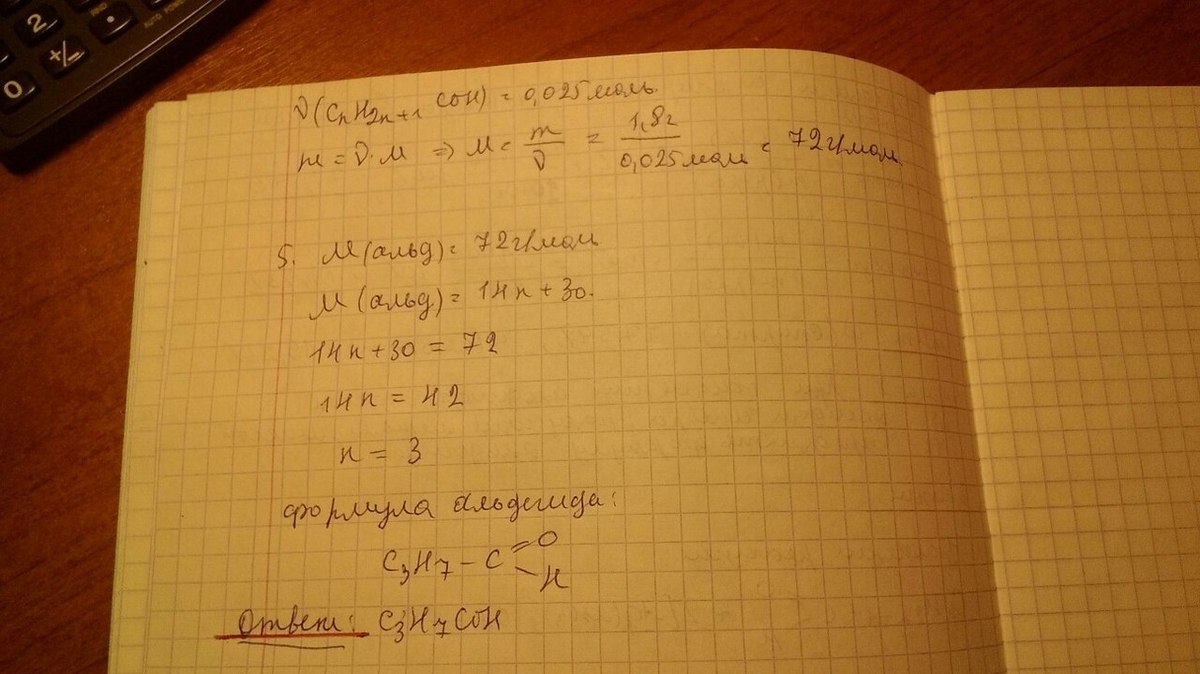 2
0
+/-
·
AUTO POWER
ν(CnH2n+1 COH) = 0,025 моль.
m = ν·M ⇒ M = m/ν = 1,8г/0,025 моль = 72 г/моль.
5. M (альд) = 72 г/моль
M (альд) = 14n + 30.
14n + 30 = 72
14n = 42
n = 3
формула альдегида:
C3H7 – C =O –H
Ответ: C3H7COH